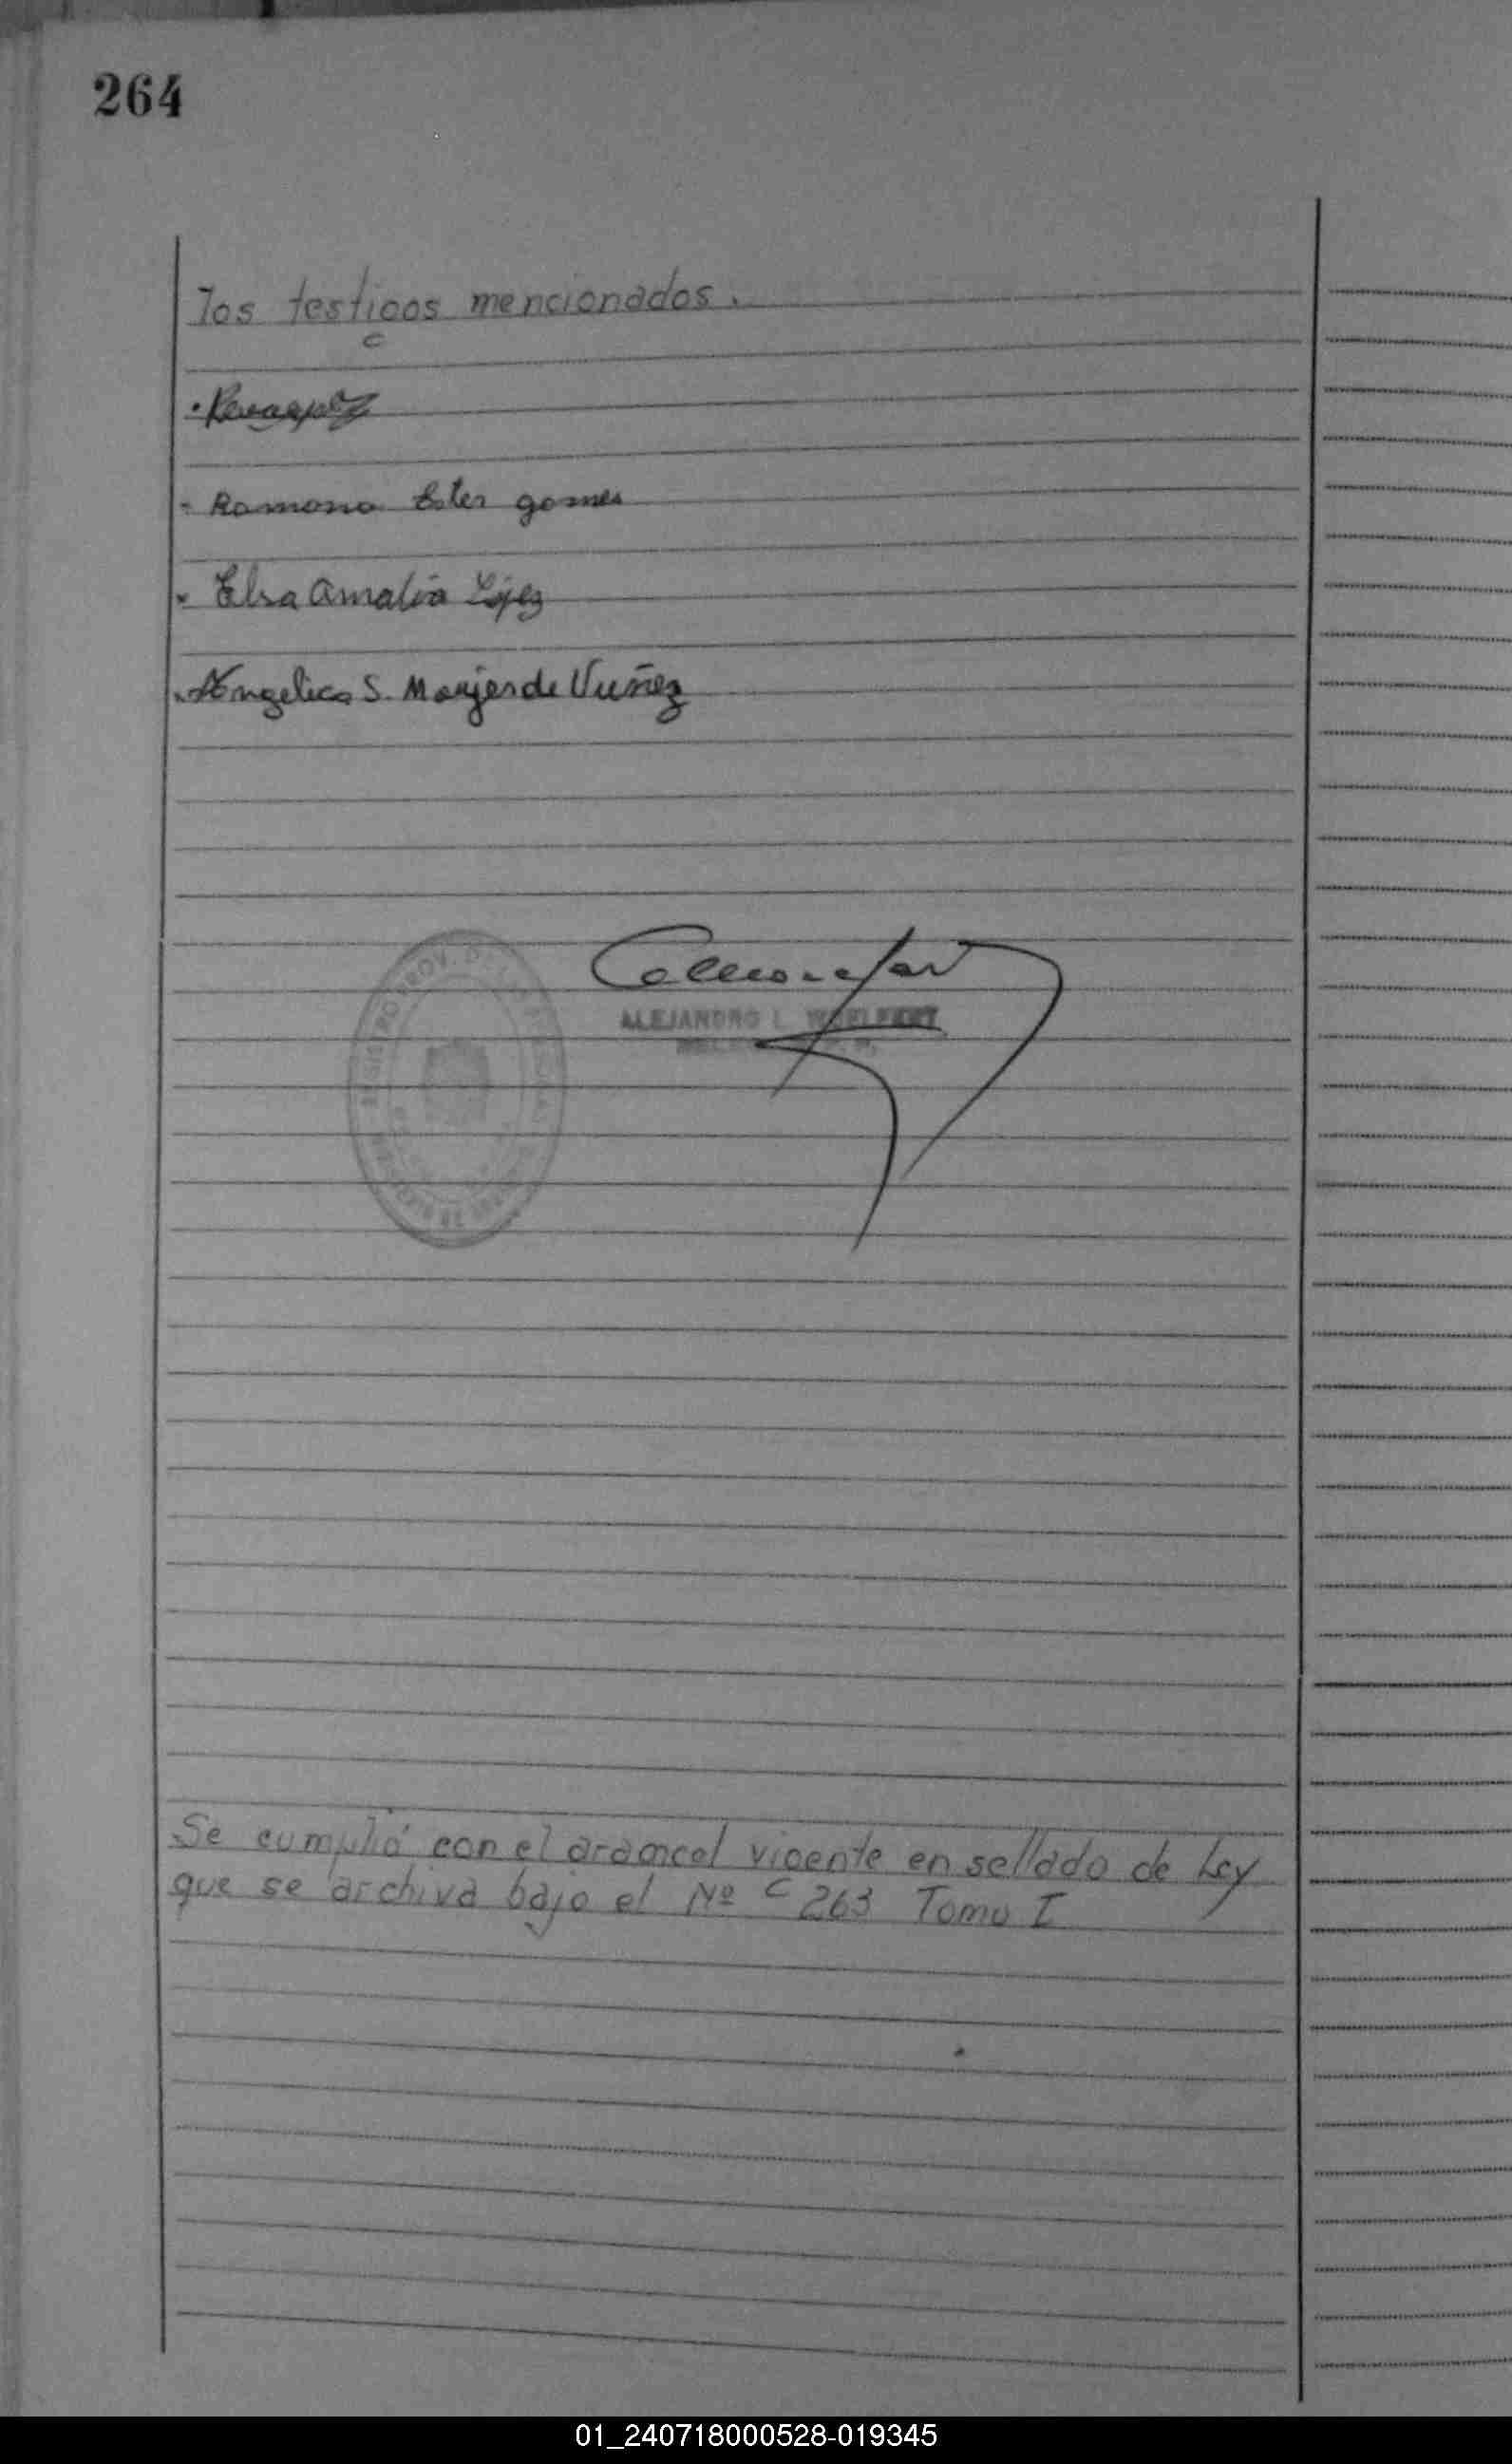 264
los testigos mencionados.
Ramona Ester gomes
Elsa Amalia López
Angelica S. Monjes de Nuñez
ALEJANDRO L.
Se cumplió con el arancel vigente en sellado de Ley
que se archiva bajo el Nº 263 Tomo I
01_240718000528-019345